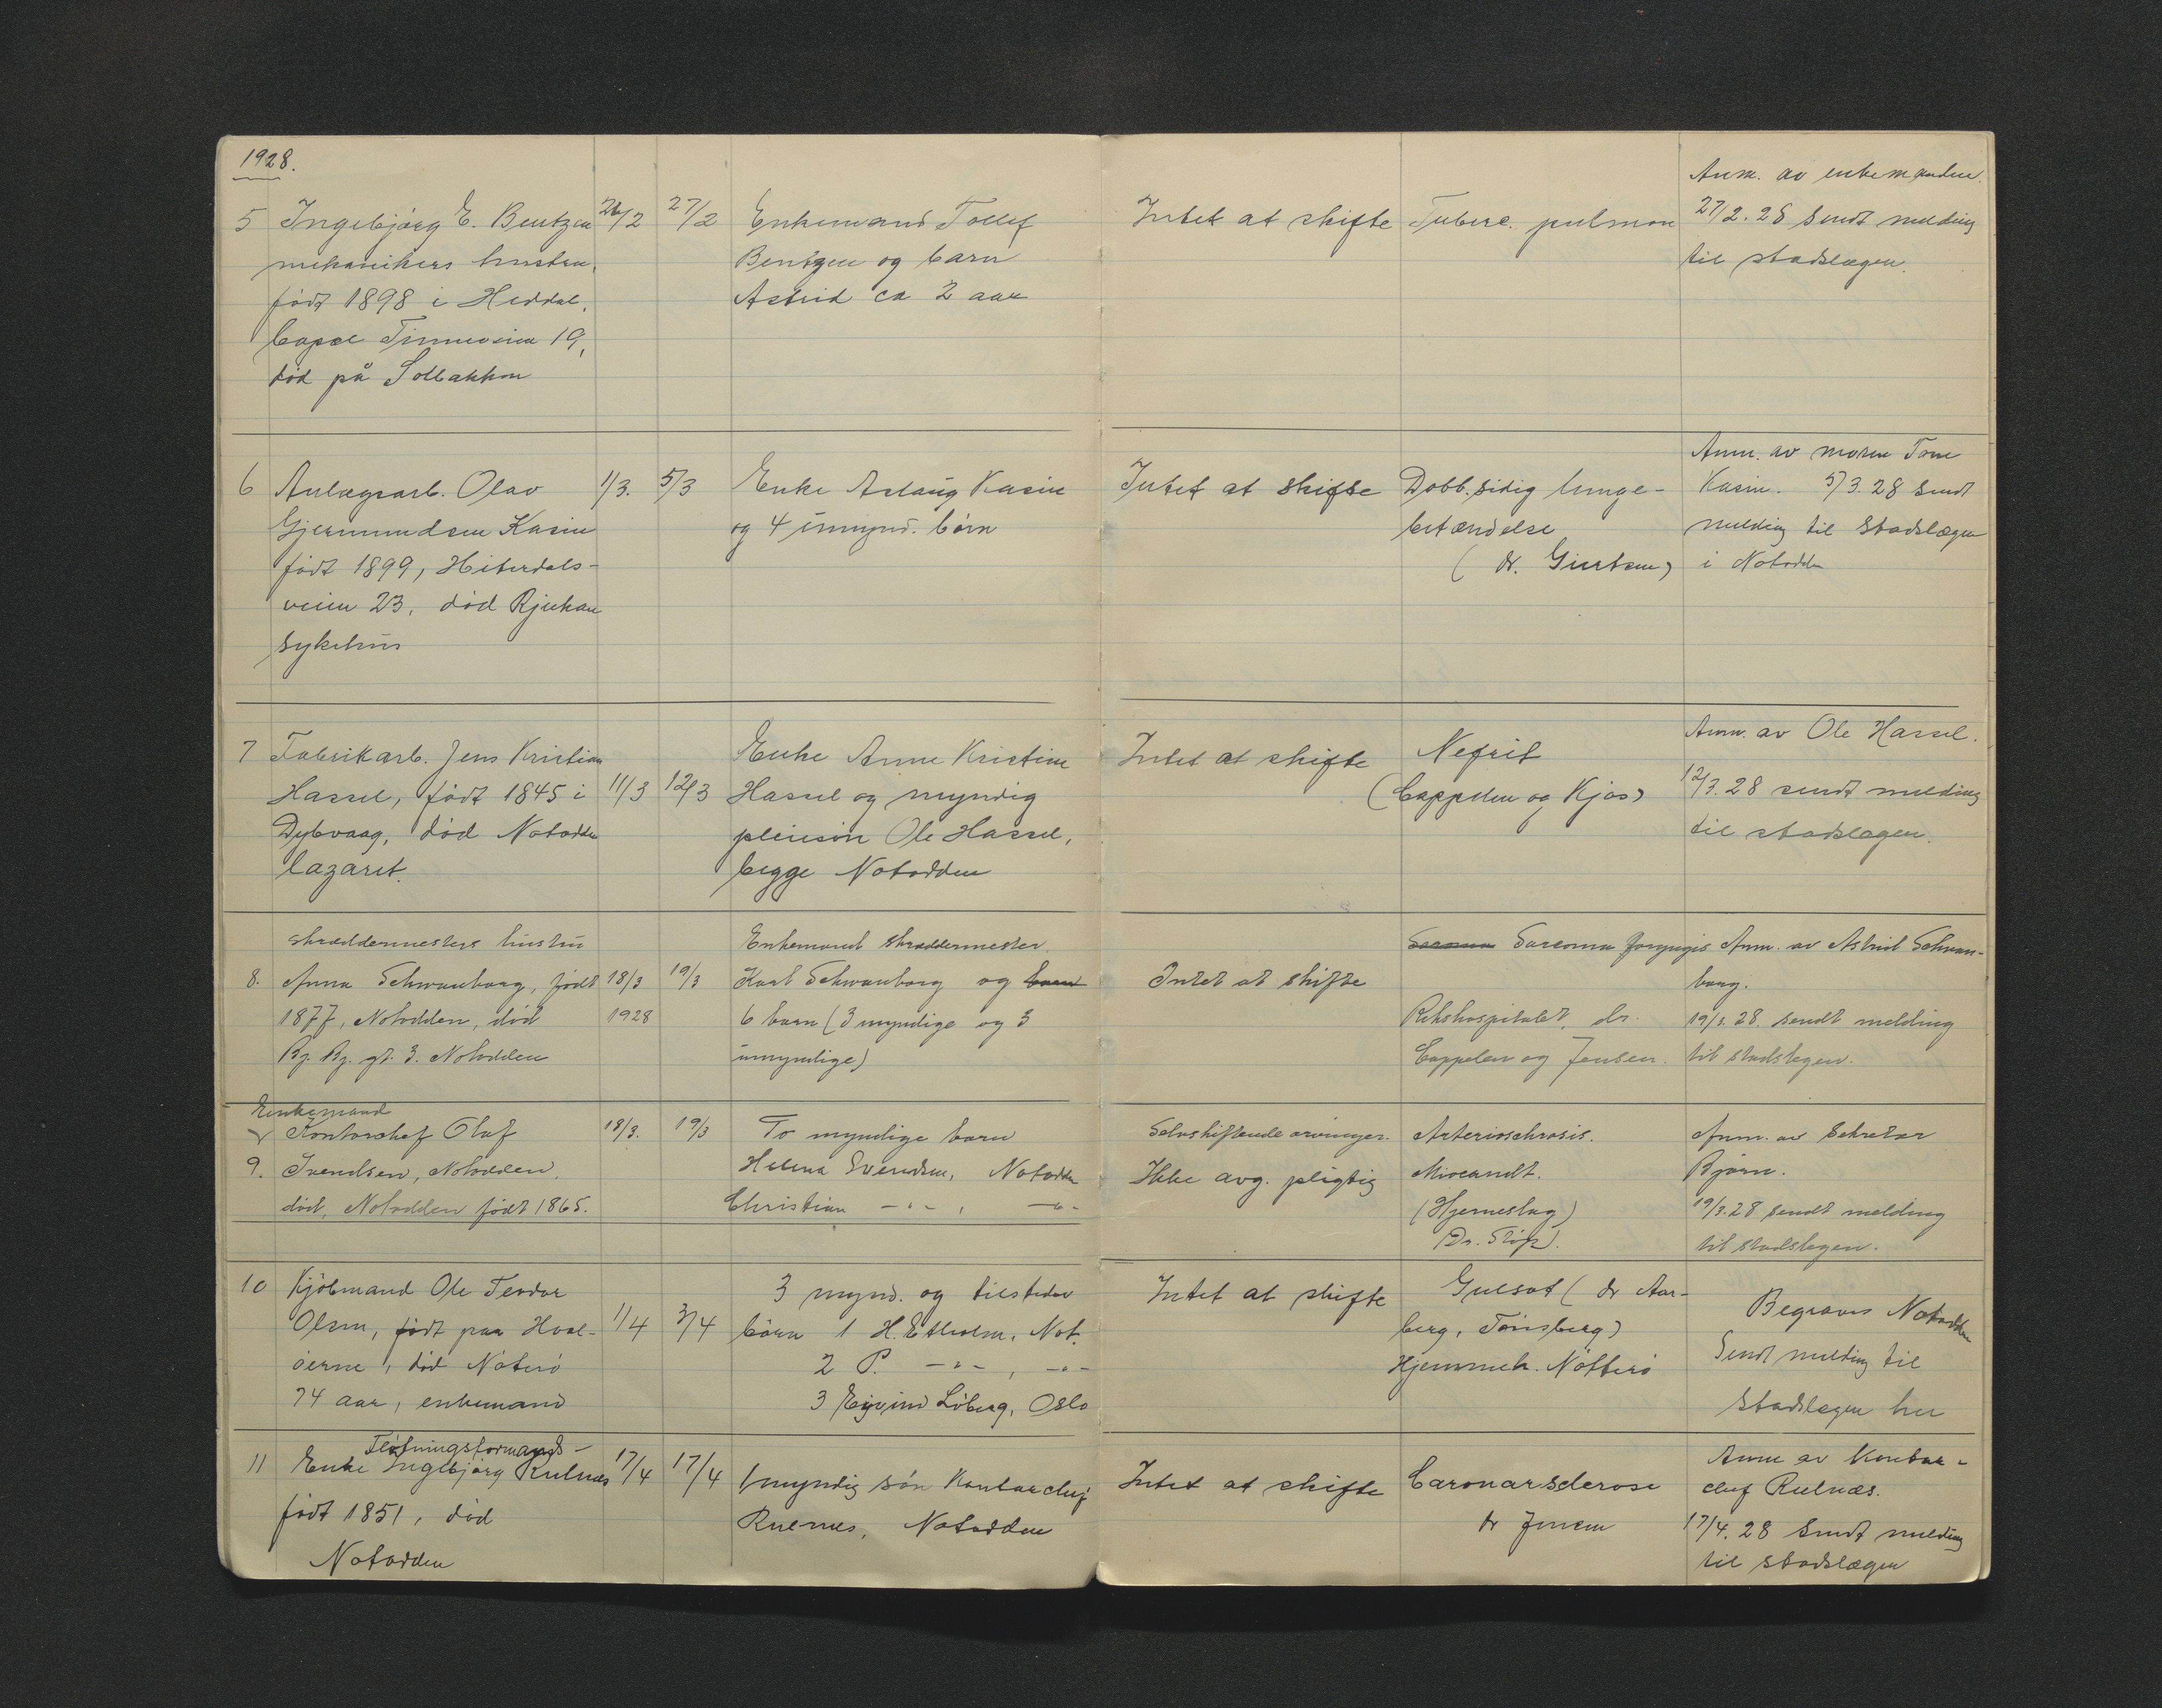 1928.
5 Ingebjørg E. Bentzen 26/2 27/2
mekanikers hustru,
født 1898 i Heddal,
bopæl Tinnesvien 19,
død på Solbakken
Enkemand Tollef
Bentzen og barn
Astrid ca 2 aar
Intet at skifte
Tuberc. pulmon
Anm. av enkemanden.
27/2.28 sendt melding
til stadslægen.
6 Anlægsarb. Olav 1/3. 5/3
Gjermundsen Kasin
født 1899, Hiterdals-
veien 23, død Rjukan
sykehus
Enke Aslaug Kasin
og 4 umynd. børn
Intet at skifte
Dobb.sidig lunge-
betændelse
(dr. Giertsen)
Anm. av moren Tone
Kasin. 5/3.28 sendt
melding til stadslægen
i Notodden
7 Fabrikarb. Jens Kristian
Hassel, født 1845 i 11/3 12/3
Dybvaag, død Notodden
lazaret.
Enke Anne Kristine
Hassel og myndig
pleiesøn Ole Hassel,
begge Notodden
Intet at skifte
Nefrit
(Cappelen og Kjos)
Anm. av Ole Hassel.
12/3.28 sendt melding
til stadslægen.
skræddermesters hustru
8. Anna Schwanborg, født 18/3 19/3
1877, Notodden, død 1928
Bj. Bj. gt. 3. Notodden
Enkemand skræddermester
Karl Schwanborg og barn
6 barn (3 myndige og 3
umyndige)
Intet at skifte
Sarcoma
Rikshospitalet, dr.
Cappelen og Jensen.
Anm. av Astrid Schwan-
borg.
19/3.28. sendt melding
til stadslegen.
Enkemand
Kontorchef Olaf 18/3. 19/3
9. Svendsen, Notodden,
død, Notodden født 1865.
To myndige barn
Helena Svendsen, Notodden
Christian -"- , -"-
Selvskiftende arvinger.
Ikke avg. pligtig
Arteriosclerosis.
(Hjerneslag)
Anm. av Sekretær
Bjørn.
19/3.28 sendt melding
til stadslegen.
10 Kjøbmand Ole Teodor
Olsen, født paa Hval- 1/4 3/4
øerne, død Nøterø
74 aar, enkemand
3 mynd. og tilstedev
børn 1 H. Etholm, Not.
2 P. -"- , -"-
3 Eyvind Löberg, Oslo
Intet at skifte
Gulsot (dr Aar-
berg, Tønsberg)
Hjemmeh. Nøtterø
Begraves Notodden
Sendt melding til
stadslegen her
Fløtningsformands-
11 Enke Ingebjørg Rulnæs 17/4 17/4
født 1851, død
Notodden
1 myndig søn Kontorchef
Rulnes, Notodden
Intet at skifte
Coronarsclerose
dr Jensen
Anm av Kontor-
chef Rulnæs.
17/4.28 sendt melding
til stadslægen